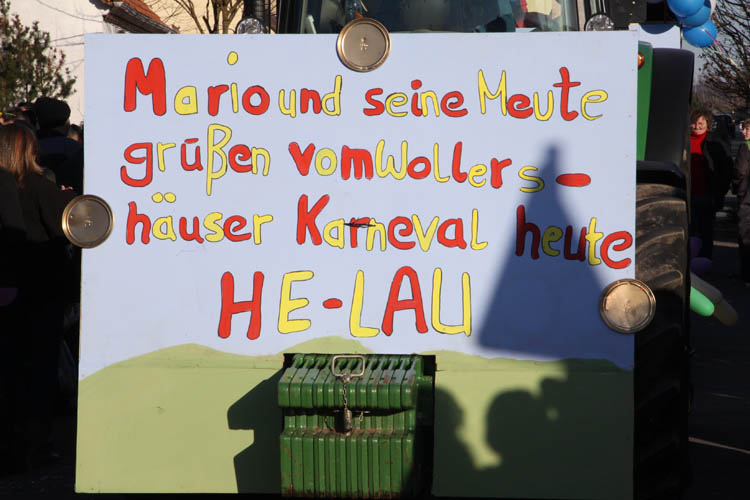 Mario und seine Meute
grüßen vom Wollers-
häuser Karneval heute
HE-LAU